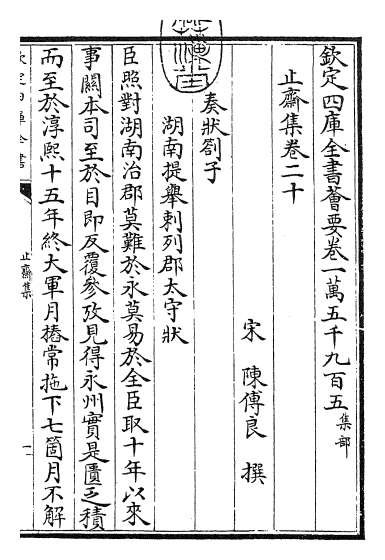 欽定四庫全書薈要卷一萬五千九百五 集部
止齋集卷二十
宋 陳傅良 撰
奏狀劄子
湖南提舉刺列郡太守狀
臣照對湖南冶郡莫難於永莫易於全臣取十年以來
事關本司至於目即反覆參攷見得永州實是匱乏積
而至於淳熙十五年終大軍月樁常拖下七箇月不解
止齋集
一